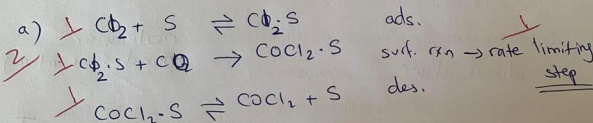 a) 1 Cl₂ + S ⇌ Cl₂·S ads. 1
2 1 Cl₂·S + CO → COCl₂·S surf. rxn → rate limiting step
1 COCl₂·S ⇌ COCl₂ + S des.